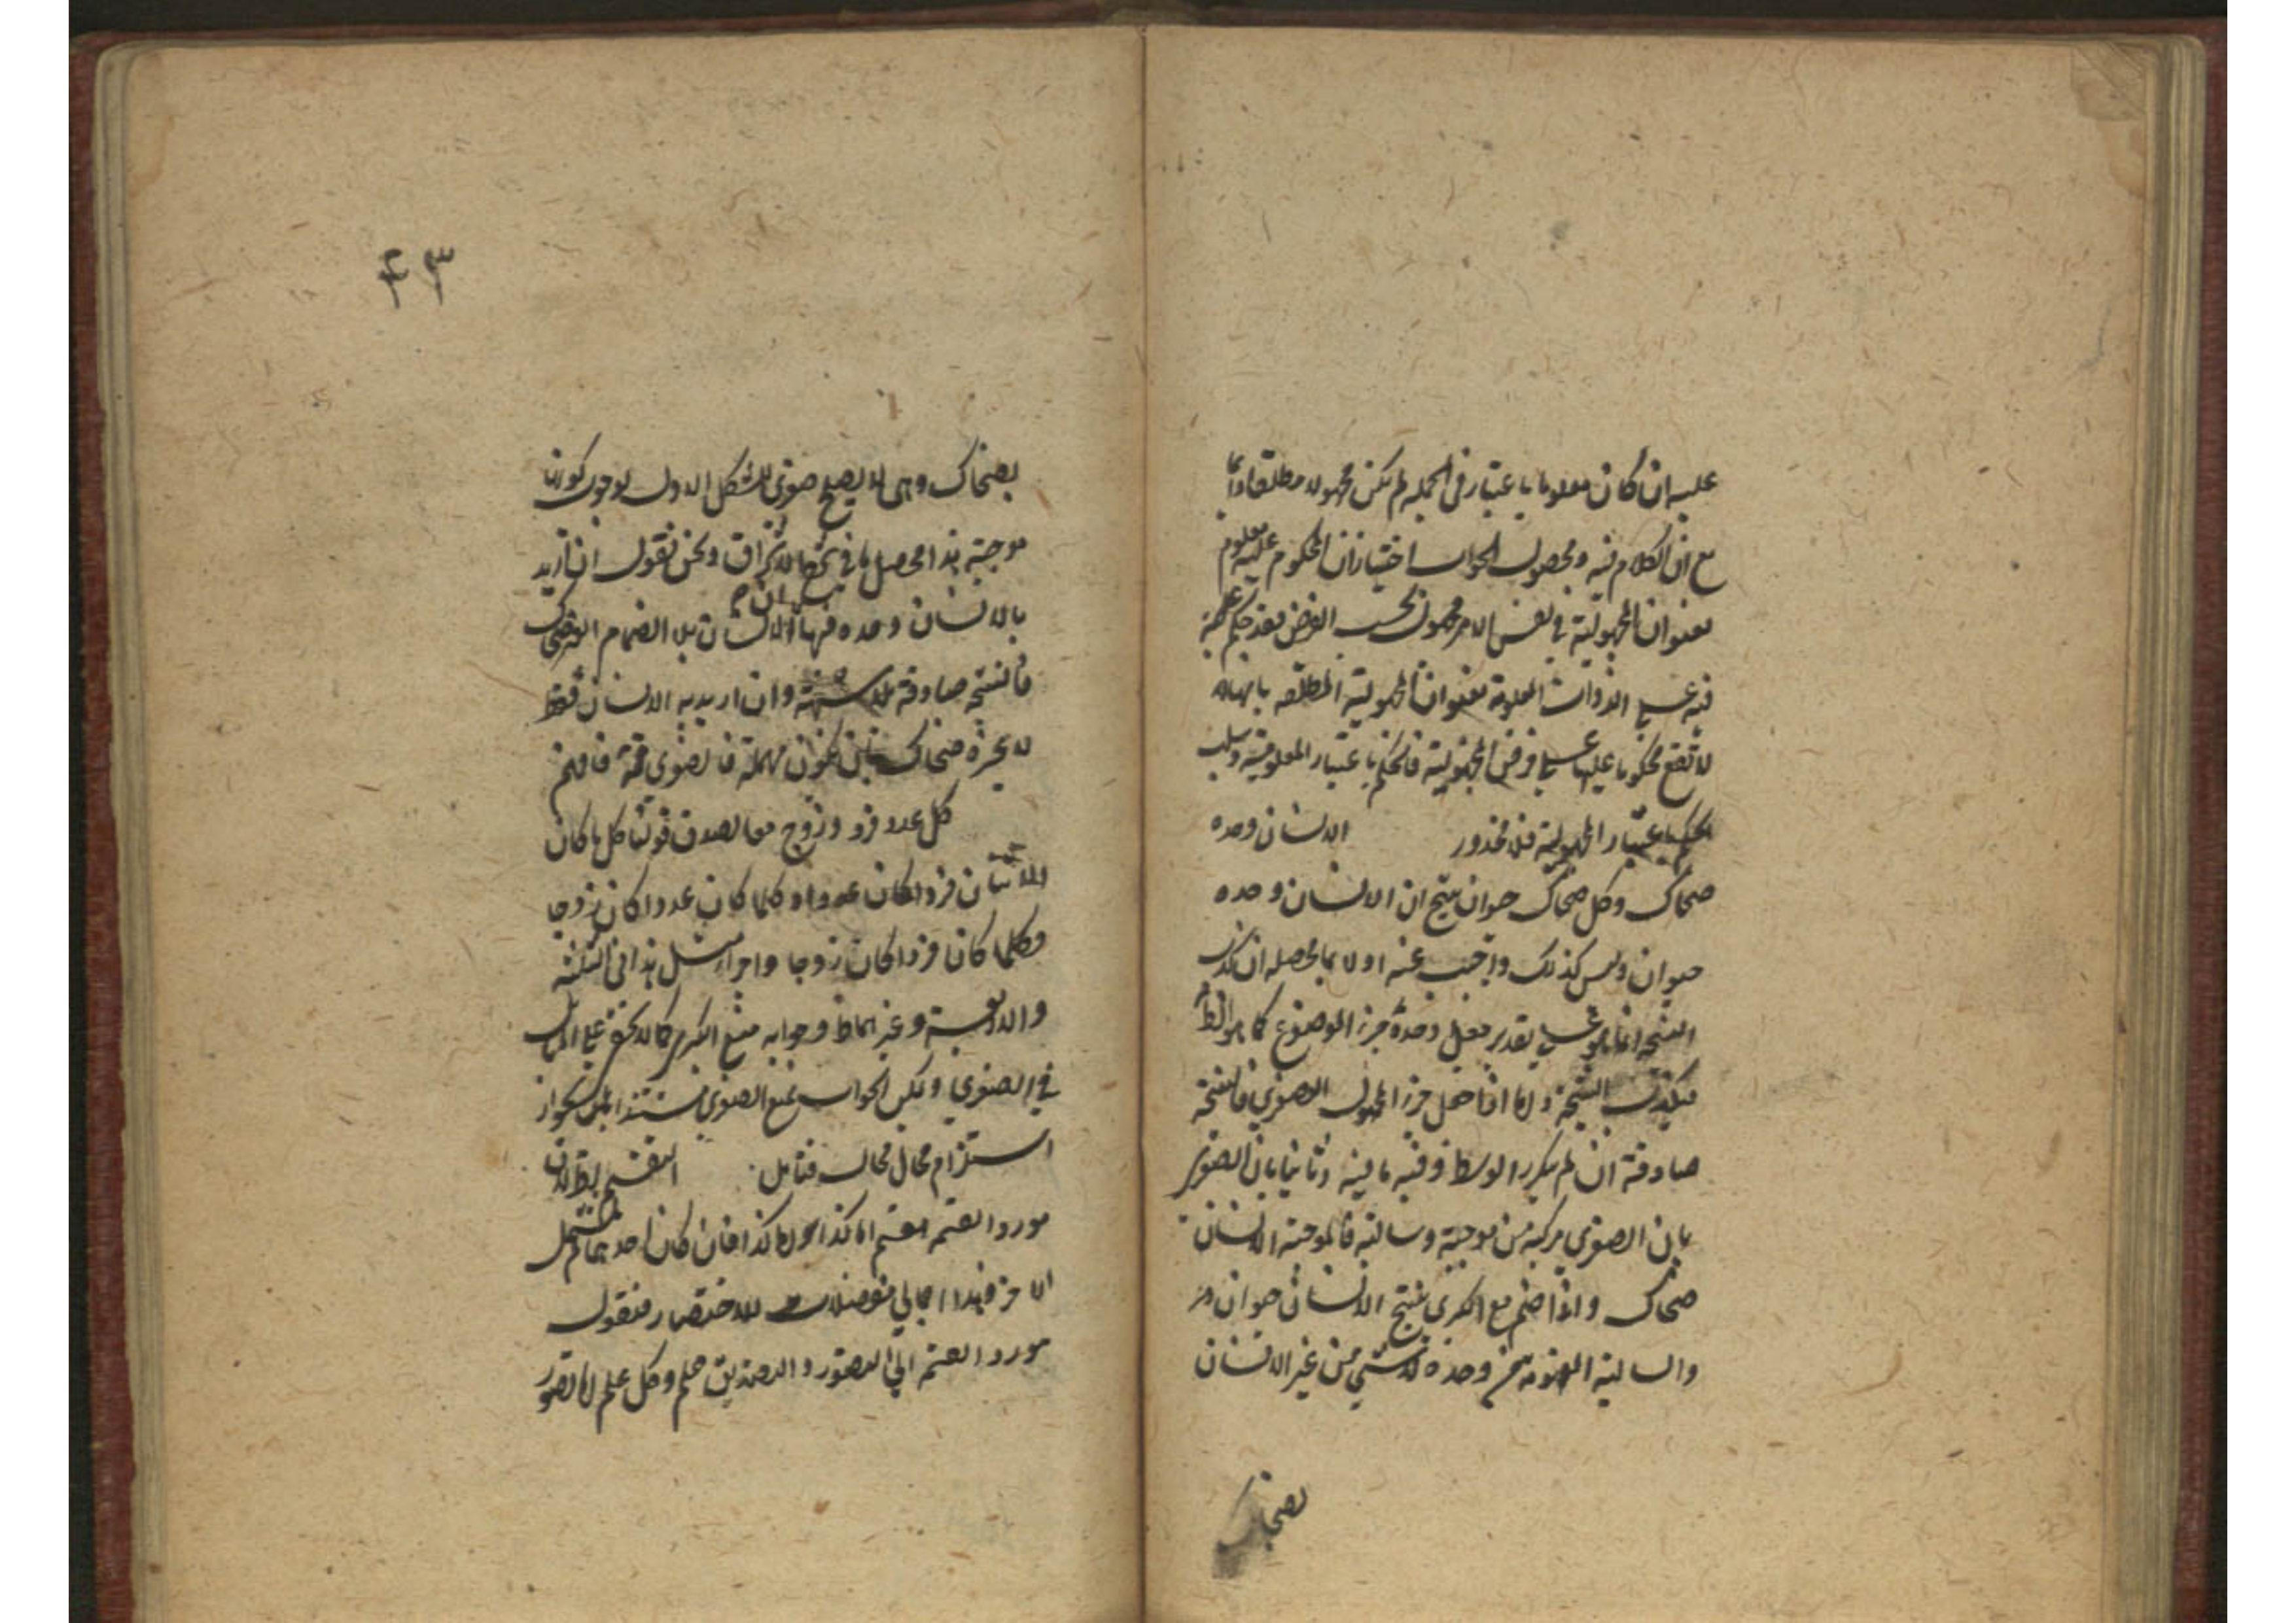 عليه ان كان معلوما باعتبار فى الجملة لم يكن مجهولا مطلقا دائما
مع ان الكلام فيه ومحصول الجواب اختيار ان المحكوم عليه معلوم
بعنوان المجهولية فى نفس الامر مجهول بحسب الفرض فقد حكم
فيه على الذوات المعلومة بعنوان المجهولية المطلقة بانها
لا تقع محكوما عليها على فرض المجهولية فالحكم باعتبار المعلومية وسلب
الحكم باعتبار المجهولية فلا محذور الانسان وحده
ضحاك وكل ضحاك حيوان ينتج ان الانسان وحده
حيوان وليس كذلك واجيب عنه اولا بما محصله ان كذب
النتيجة انما هو على تقدير جعل وحده جزء الموضوع كما هو الظ
فيكذب النتيجة واما اذا جعل جزء المحمول الصغرى فالنتيجة
صادقة ان لم يكرر الوسط وفيه ما فيه وثانيا بان الصغرى
بان الصغرى مركبة من موجبة وسالبة فالموجبة الانسان
ضحاك واذا ضم مع الكبرى ينتج الانسان حيوان
والسالبة المفهومة من وحده لا شىء من غير الانسان
بضحاك
٤٣
بضحاك وهى لا يصلح صغرى للشكل الاول لوجوب كونها
موجبة هذا محصل ما فى ونحن نقول ان اريد
بالانسان وحده الانسان بلا انضمام
فالنتيجة صادقة وان اريد به الانسان فقط
لا غيره ضحاك مهملة فالصغرى فافهم
كل عدد فرد وزوج معا لصدق قولنا كلما كان
الاثنان فردا كان عددا وكلما كان عددا كان زوجا
فكلما كان فردا كان زوجا واجراء مثل هذا فى الثلثة
والاربعة وغيرهما ظ وجوابه منع الكبرى كما لا يخفى على
فى الصغرى ويمكن الجواب بمنع الصغرى مستندا بجواز
استلزام محال محال فتأمل التقسيم بط لان
مورد القسمة اما كذا واما كذا فان كان احدهما لم يشتمل
الاخر فهذا اجمالى للاختصار فنقول
مورد القسمة الى التصور والتصديق علم وكل علم اما تصور